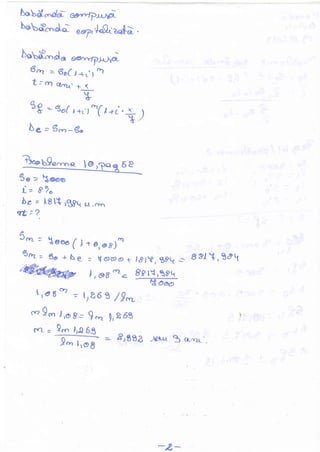 Dobândă compusă
Dobândă capitalizată.
Dobânda compusă
Sn = S0(1+i)^n
t = n ani + x/y
Sf = S0(1+i)^n (1+i·x/y)
De = Sn-S0
Problema 10, pag 52
S0 = 7000
i = 8%
De = 1817,984 u.m
t = ?
Sn = 7000 (1+0,08)^n
Sn = S0 + De = 7000 + 1817,984 = 8817,984
1,08^n = 8817,984/7000
1,08^n = 1,269 /ln
n ln 1,08 = ln 1,269
n = ln 1,269/ln 1,08 = 2,992 sau 3 ani.
-2-